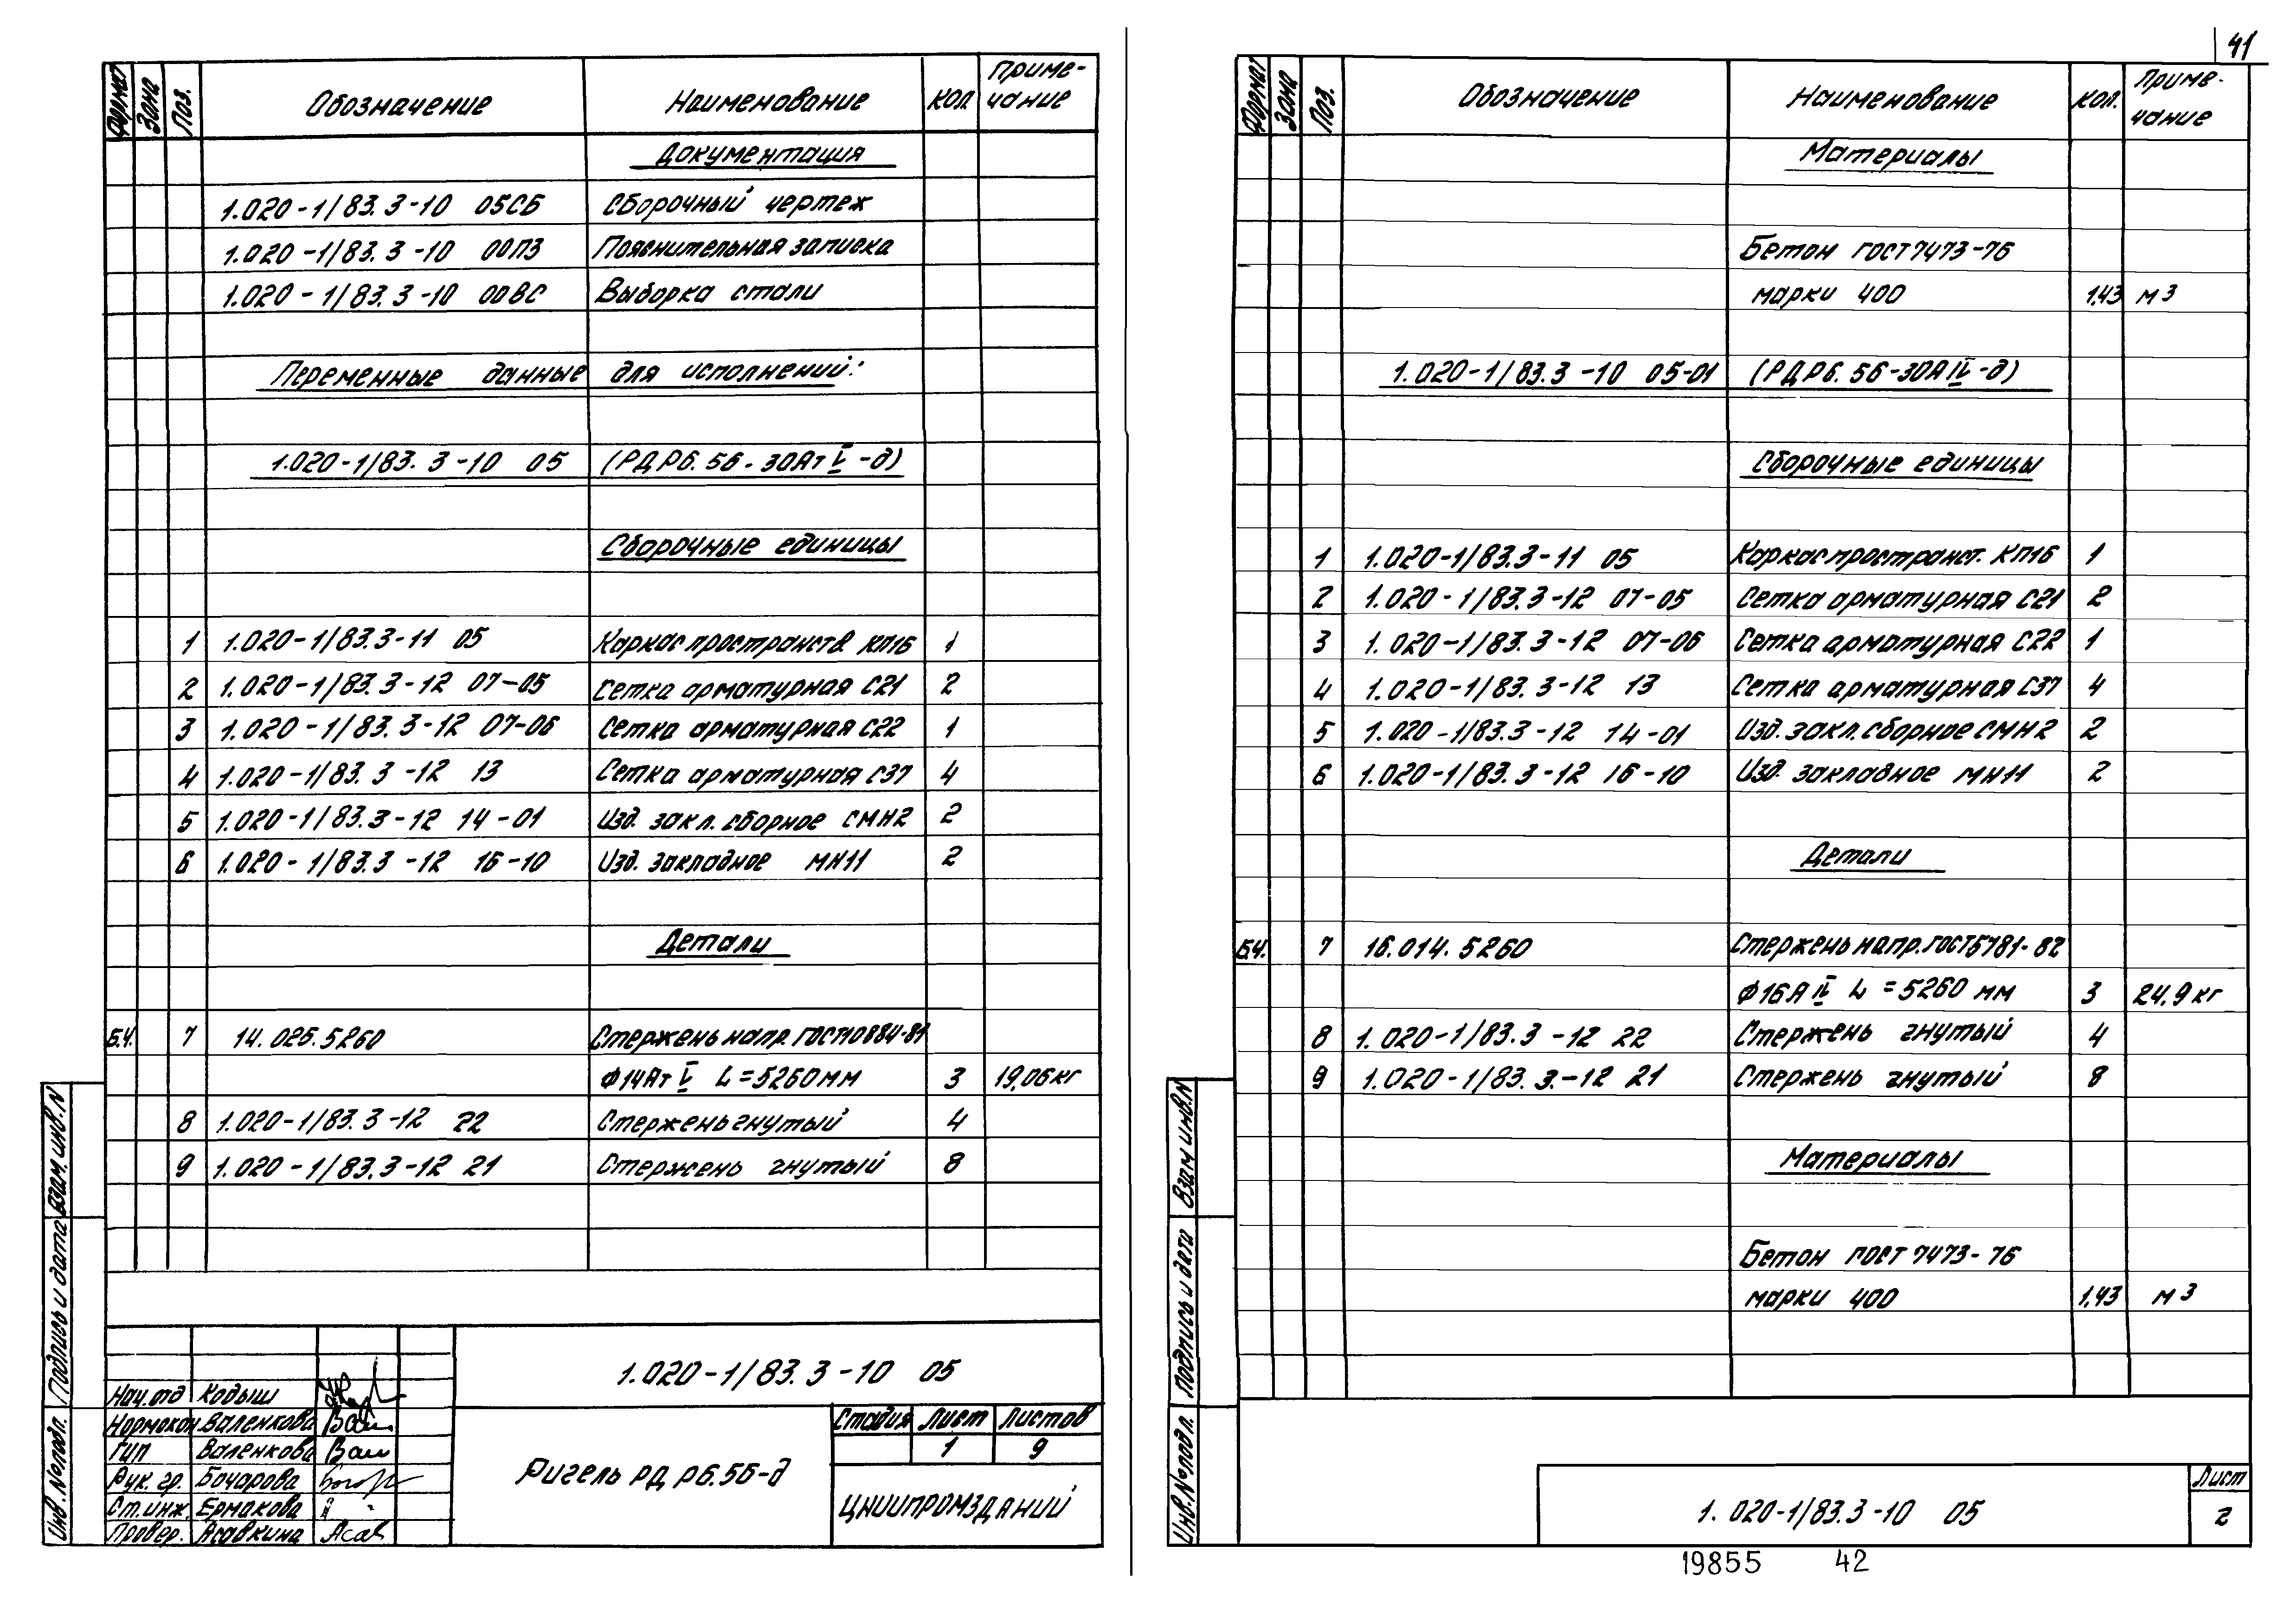 Формат Зона Поз. Обозначение Наименование Кол. Приме-
чание
Документация
1.020-1/83.3-10 05СБ Сборочный чертеж
1.020-1/83.3-10 00ПЗ Пояснительная записка
1.020-1/83.3-10 00ВС Выборка стали
Переменные данные для исполнений:
1.020-1/83.3-10 05 (РДР6.56-30АтV-д)
Сборочные единицы
1 1.020-1/83.3-11 05 Каркас пространств КП16 1
2 1.020-1/83.3-12 07-05 Сетка арматурная С21 2
3 1.020-1/83.3-12 07-06 Сетка арматурная С22 1
4 1.020-1/83.3-12 13 Сетка арматурная С37 4
5 1.020-1/83.3-12 14-01 Изд. закл. сборное СМН2 2
6 1.020-1/83.3-12 16-10 Изд. закладное МН11 2
Детали
Б.Ч. 7 14.025.5260 Стержень напр. ГОСТ10884-81
Ф14АтV L=5260мм 3 19,06кг
8 1.020-1/83.3-12 22 Стержень гнутый 4
9 1.020-1/83.3-12 21 Стержень гнутый 8
1.020-1/83.3-10 05
Нач.отд Кодыш
Нормокон Валенкова Вал
ГИП Валенкова Вал
Рук. гр. Бочарова
Ст.инж. Ермакова
Провер. Асавкина Асав
Ригель РДР6.56-д
Стадия Лист Листов
1 9
ЦНИИПРОМЗДАНИЙ
Взам. инв. N
Подпись и дата
Инв. № подл.
41
Формат Зона Поз. Обозначение Наименование Кол. Приме-
чание
Материалы
Бетон ГОСТ7473-76
марки 400 1,43 м3
1.020-1/83.3-10 05-01 (РДР6.56-30АIV-д)
Сборочные единицы
1 1.020-1/83.3-11 05 Каркас пространст. КП16 1
2 1.020-1/83.3-12 07-05 Сетка арматурная С21 2
3 1.020-1/83.3-12 07-06 Сетка арматурная С22 1
4 1.020-1/83.3-12 13 Сетка арматурная С37 4
5 1.020-1/83.3-12 14-01 Изд. закл. сборное СМН2 2
6 1.020-1/83.3-12 16-10 Изд. закладное МН11 2
Детали
Б.Ч. 7 16.014.5260 Стержень напр. ГОСТ5781-82
Ф16АIV L=5260 мм 3 24,9 кг
8 1.020-1/83.3-12 22 Стержень гнутый 4
9 1.020-1/83.3-12 21 Стержень гнутый 8
Материалы
Бетон ГОСТ 7473-76
марки 400 1,43 м3
Взам инв.N
Подпись и дата
Инв. № подл.
1.020-1/83.3-10 05
Лист
2
19855 42